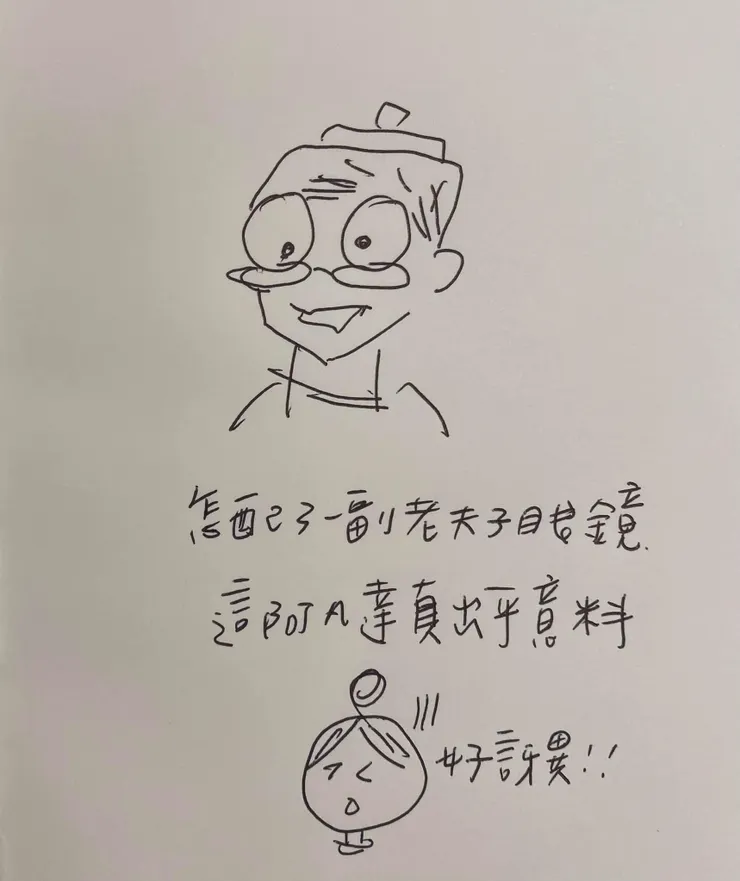 怎配了一副老夫子眼鏡
這阿凡達真出乎意料
好訝異!!